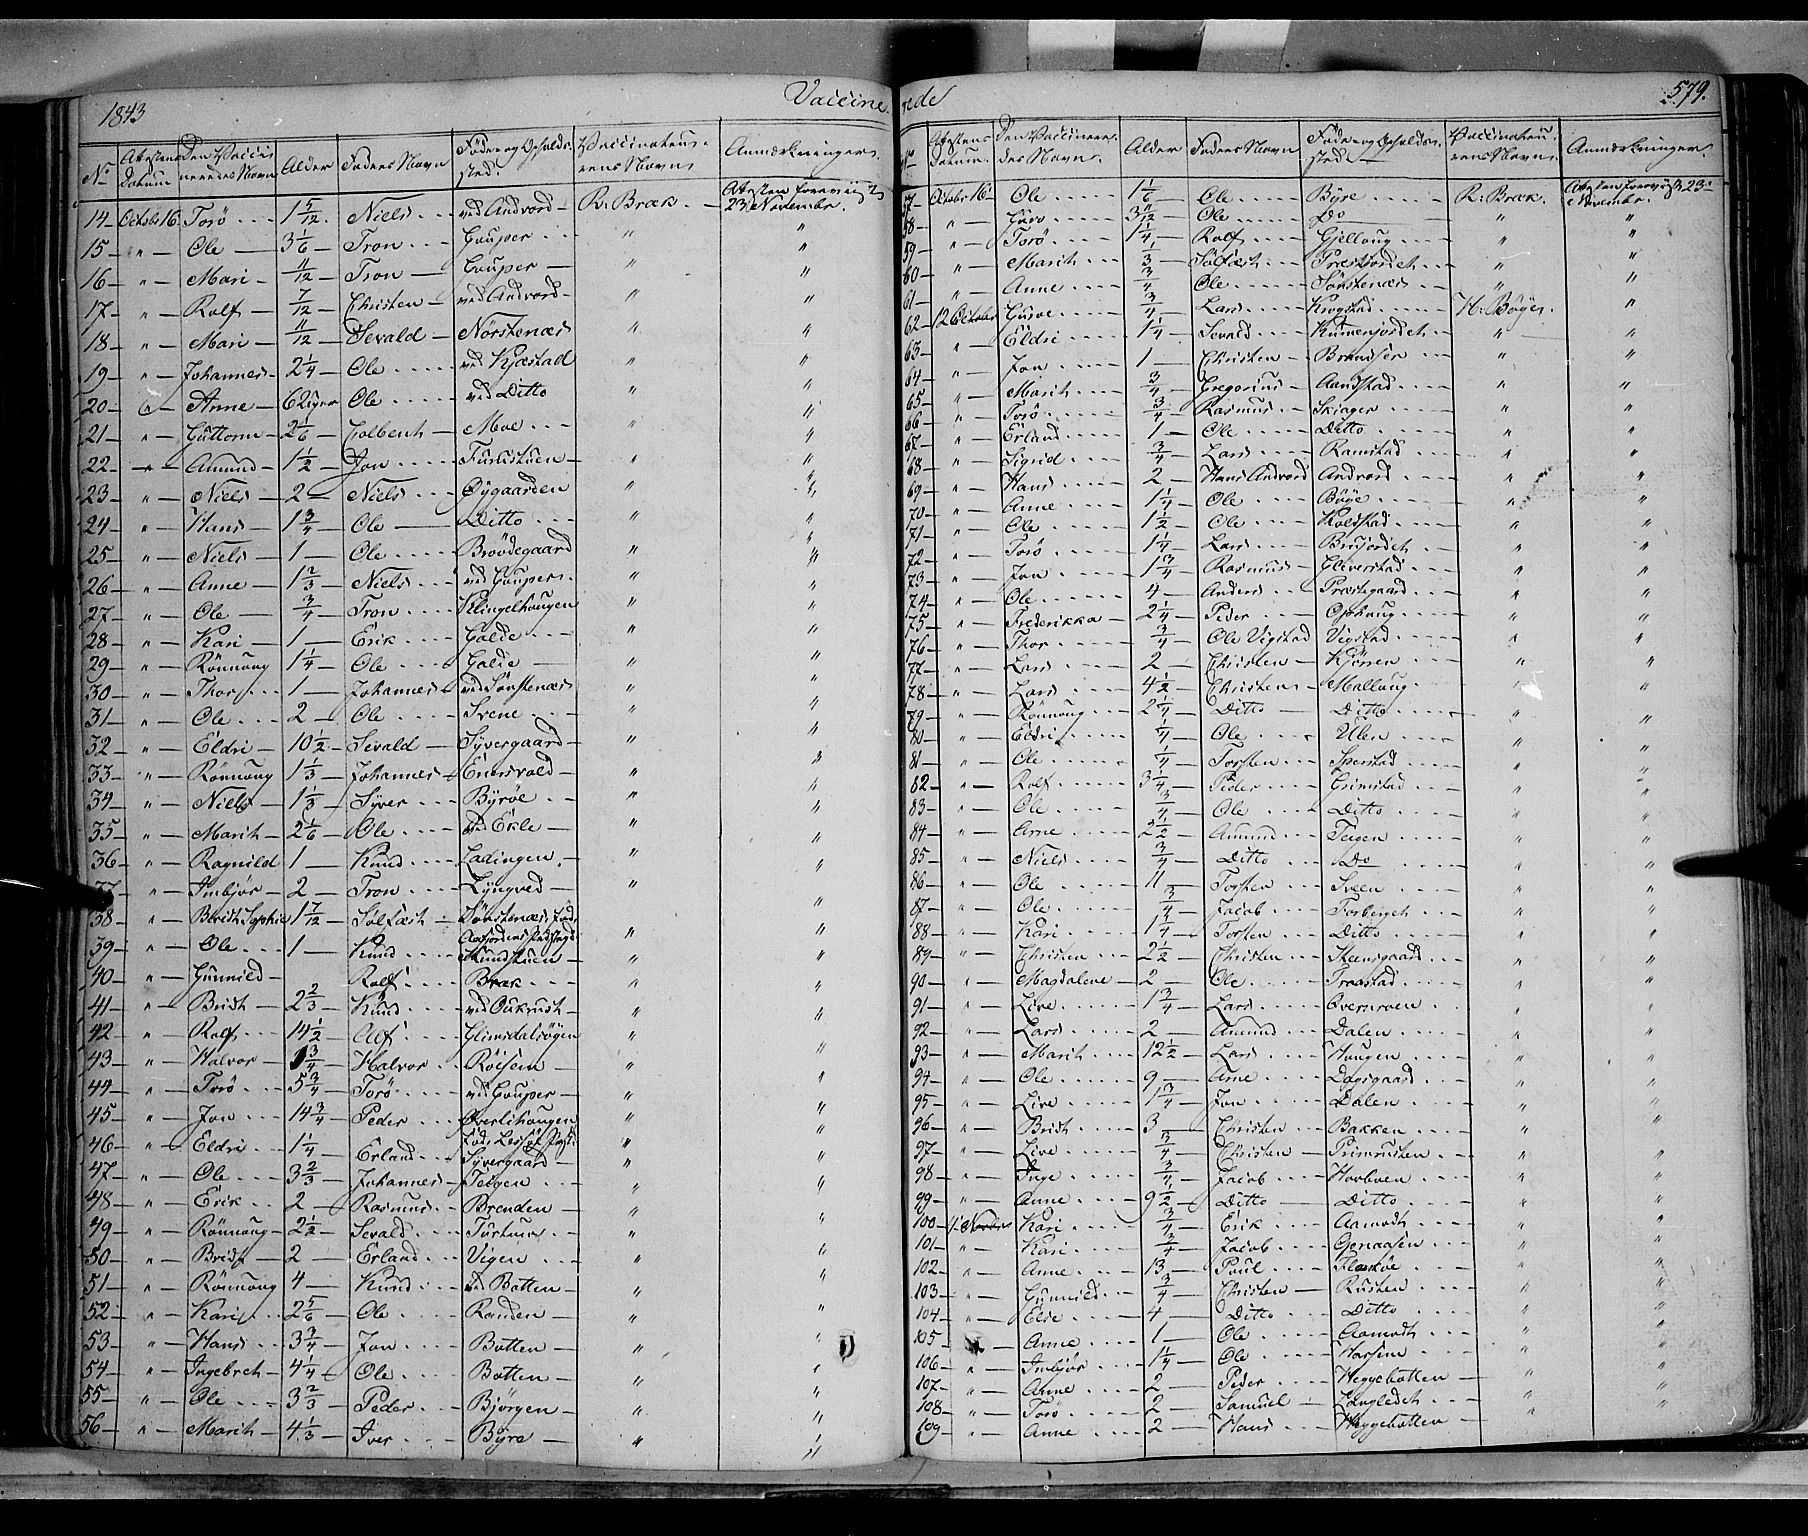 1843
Vaccine
rede
579.
No Attestens Datum Den Vaccinerendes Navn Alder Faders Navn Føde- og Opholds-sted. Vaccinateurens Navn Anmærkninger.
14 Octobr 16 Torø 1 5/12 Niels ved Andvord R: Bræk Attesten foreviist 23 Novembr.
15 " Ole 3 1/6 Tron Gauper " "
16 " Mari 11/12 Tron Gauper " "
17 " Rolf 7/12 Christen ved Andvord " "
18 " Mari 11/12 Sevald Nørstenæs " "
19 " Johannes 2 1/4 Ole ved Kjæstad " "
20 " Anne 6 Uger Ole ved Ditto " "
21 " Guttorm 2 1/6 Colbent Moe " "
22 " Amund 1 1/2 Jon Furustuen " "
23 " Niels 2 Niels Øygaarden " "
24 " Hans 1 3/4 Ole Ditto " "
25 " Niels 1 Ole Brødegaard " "
26 " Anne 1 2/3 Niels ved Gauper " "
27 " Ole 3/4 Tron Klingelhaugen " "
28 " Kari 1 Erik Galde " "
29 " Rønnoug 1 1/4 Ole Galde " "
30 " Thor 1 Johannes ved Sørstenæs " "
31 " Ole 2 Ole Svene " "
32 " Eldri 10 1/2 Sevald Syvergaard " "
33 " Rønnoug 1 1/3 Johannes Enersvold " "
34 " Niels 1 1/3 Syver Byrøe " "
35 " Marit 2 1/6 Ole ved Ekle " "
36 " Ragnild 1 Knud Ladingen " "
37 " Imbjør 2 Tron Lyngved " "
38 " Berit Sophie 1 7/12 Sølfæst Sørstenæs, Født " "
39 " Ole 1 Knud Knudstuen " "
40 " Gunnild Rolf Bræk " "
41 " Bridt 2 2/3 Knud ved Oukrust " "
42 " Rolf 14 1/2 Alf Glimsdalsøgen " "
43 " Halvor 3/4 Halvor Røisem " "
44 " Torø 5 3/4 Torø ved Gauper " "
45 " Jon 14 3/4 Peder Øverlihaugen " "
46 " Eldri 1 1/4 Erland Syvergaard " "
47 " Ole 3 2/3 Johannes Teigen " "
48 " Erik 2 Rasmus Brenden " "
49 " Rønnoug 2 1/2 Sevald Turtnes " "
50 " Bridt 2 Erland Vigen " "
51 " Rønnoug 4 Knud Botten " "
52 " Kari 2 5/6 Ole Randen " "
53 " Hans 3 3/4 Jon Botten " "
54 " Ingebret 4 1/4 Ole Botten " "
55 " Ole 3 2/3 Peder Bjørgen " "
56 " Marit 4 1/3 Iver Byre " "
No Attestens Datum. Den Vaccineredes Navn. Alder Faders Navn Føde- og Opholdssted. Vaccinateurens Navn. Anmærkninger.
57 Octobr 16 Ole 1 1/6 Ole Byre R: Bræk. Attesten foreviist 23 Novembr.
58 " Guro 3 11/12 Ole Do " "
59 " Torø 1 1/4 Rolf Gjellaug " "
60 " Marit 1/3 Sølfæst Præstjordet " "
61 " Anne 3/4 Ole Sørstenæs " "
62 12 Octobr Guroe 3/4 Lars Krogstad H: Bøye. "
63 " Eldri 1 1/4 Sevald Kummenjordet " "
64 " Jon 1 Christen Brandser " "
65 " Marit 3/4 Gregorius Aandstad " "
66 " Torø 3/4 Rasmus Skiager " "
67 " Erland 1 Ole Ditto " "
68 " Sigrid 3/4 Lars Ramstad " "
69 " Hans 2 Hans Andvord Andvord " "
70 " Anne 1 1/4 Ole Bøye " "
71 " Ole 1 1/2 Ole Koldstad " "
72 " Torø 1 1/4 Lars Brujordet " "
73 " Jon 1 3/4 Rasmus Gliverstad " "
74 " Ole 4 Anders Præstegaard " "
75 " Frederikka 2 1/4 Peder Ophaug " "
76 " Thor 3/4 Ole Vigstad Vigstad " "
77 " Lars 2 Christen Kjøren " "
78 " Lars 4 1/2 Christen Mollaug " "
79 " Rønnoug 2 1/4 Ditto Ditto " "
80 " Eldri 1/4 Ole Ulen " "
81 " Ole 1/4 Torsten Sperstad " "
82 " Rolf 3 1/4 Peder Grimstad " "
83 " Ole 3/4 Ole Ditto " "
84 " Arne 2 1/2 Amund Teigen " "
85 " Niels 3/4 Ditto Do " "
86 " Ole 11 Torsten Sveen " "
87 " Ole 3/4 Jacob Torberget " "
88 " Kari 1 1/4 Torsten Ditto " "
89 " Christen 2 1/2 Christen Steensgaard " "
90 " Magdalene 2 Ole Traastad " "
91 " Live 1 3/4 Lars Øvernroen " "
92 " Lars 2 Amund Dalen " "
93 " Marit 12 1/2 Lars Haugen " "
94 " Ole 9 Arne Dagsgaard " "
95 " Live 1 3/4 Jon Dalen " "
96 " Bridt 3 Christen Bakken " "
97 " Live 3/4 Christen Primrusten " "
98 " Inge 3/4 Jacob Hovloen " "
99 " Anne 9 1/2 Ditto Ditto " "
100 11 Novbr Kari 3/4 Erik Aamodt " "
101 " Kari 3/4 Jacob Opnaasen " "
102 " Anne 13 Paul Flækøe " "
103 " Gunnild 3/4 Christen Rusten " "
104 " Else 4 Ditto Ditto " "
105 " Anne 1 Ole Aamodt " "
106 " Imbjør 1 1/4 Ole Horsem " "
107 " Anne 2 Peder Heggebotten " "
108 " Torø 2 Samuel Langledet " "
109 " Anne 2 Hans Heggebotten " "